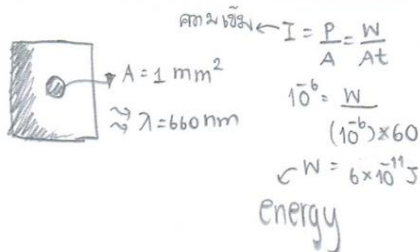 ความเข้ม ← I = P/A = W/At
A = 1 mm²
λ = 660 nm
10⁻⁶ = W/(10⁻⁶)×60
W = 6×10⁻¹¹ J
energy